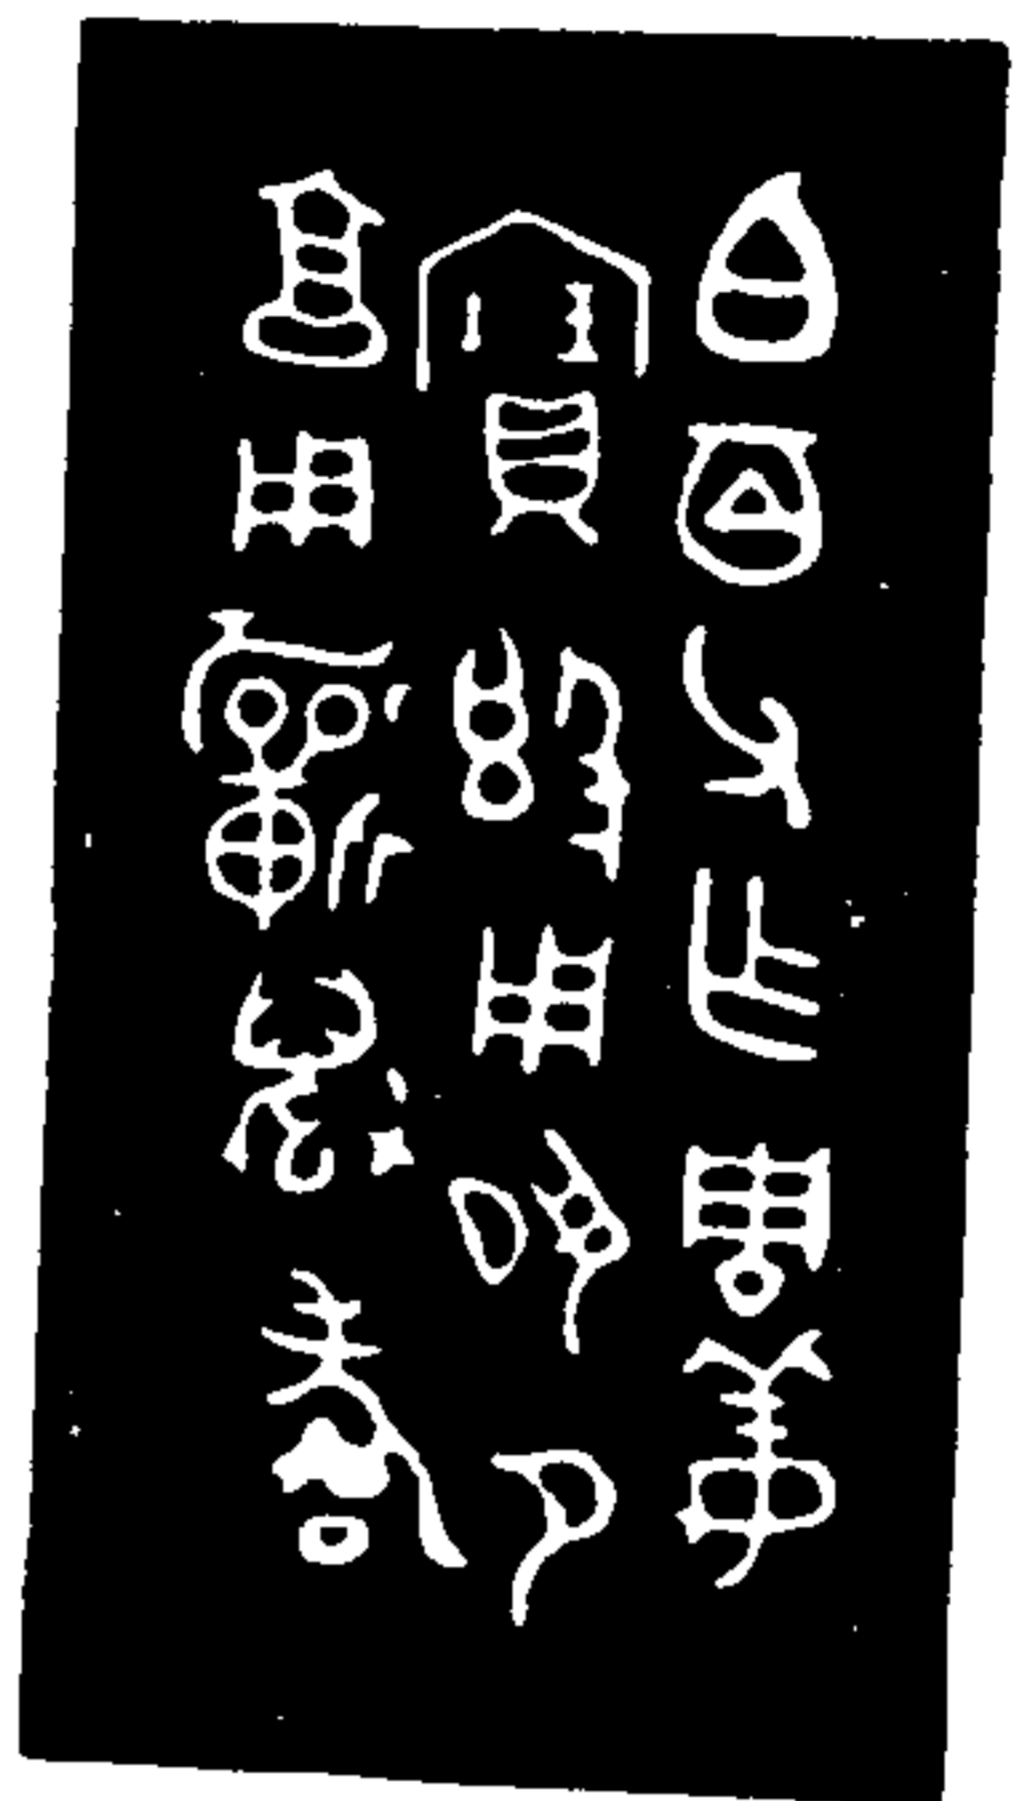 白百父乍周姜
寶𣪘用夙夕
享用祈萬壽